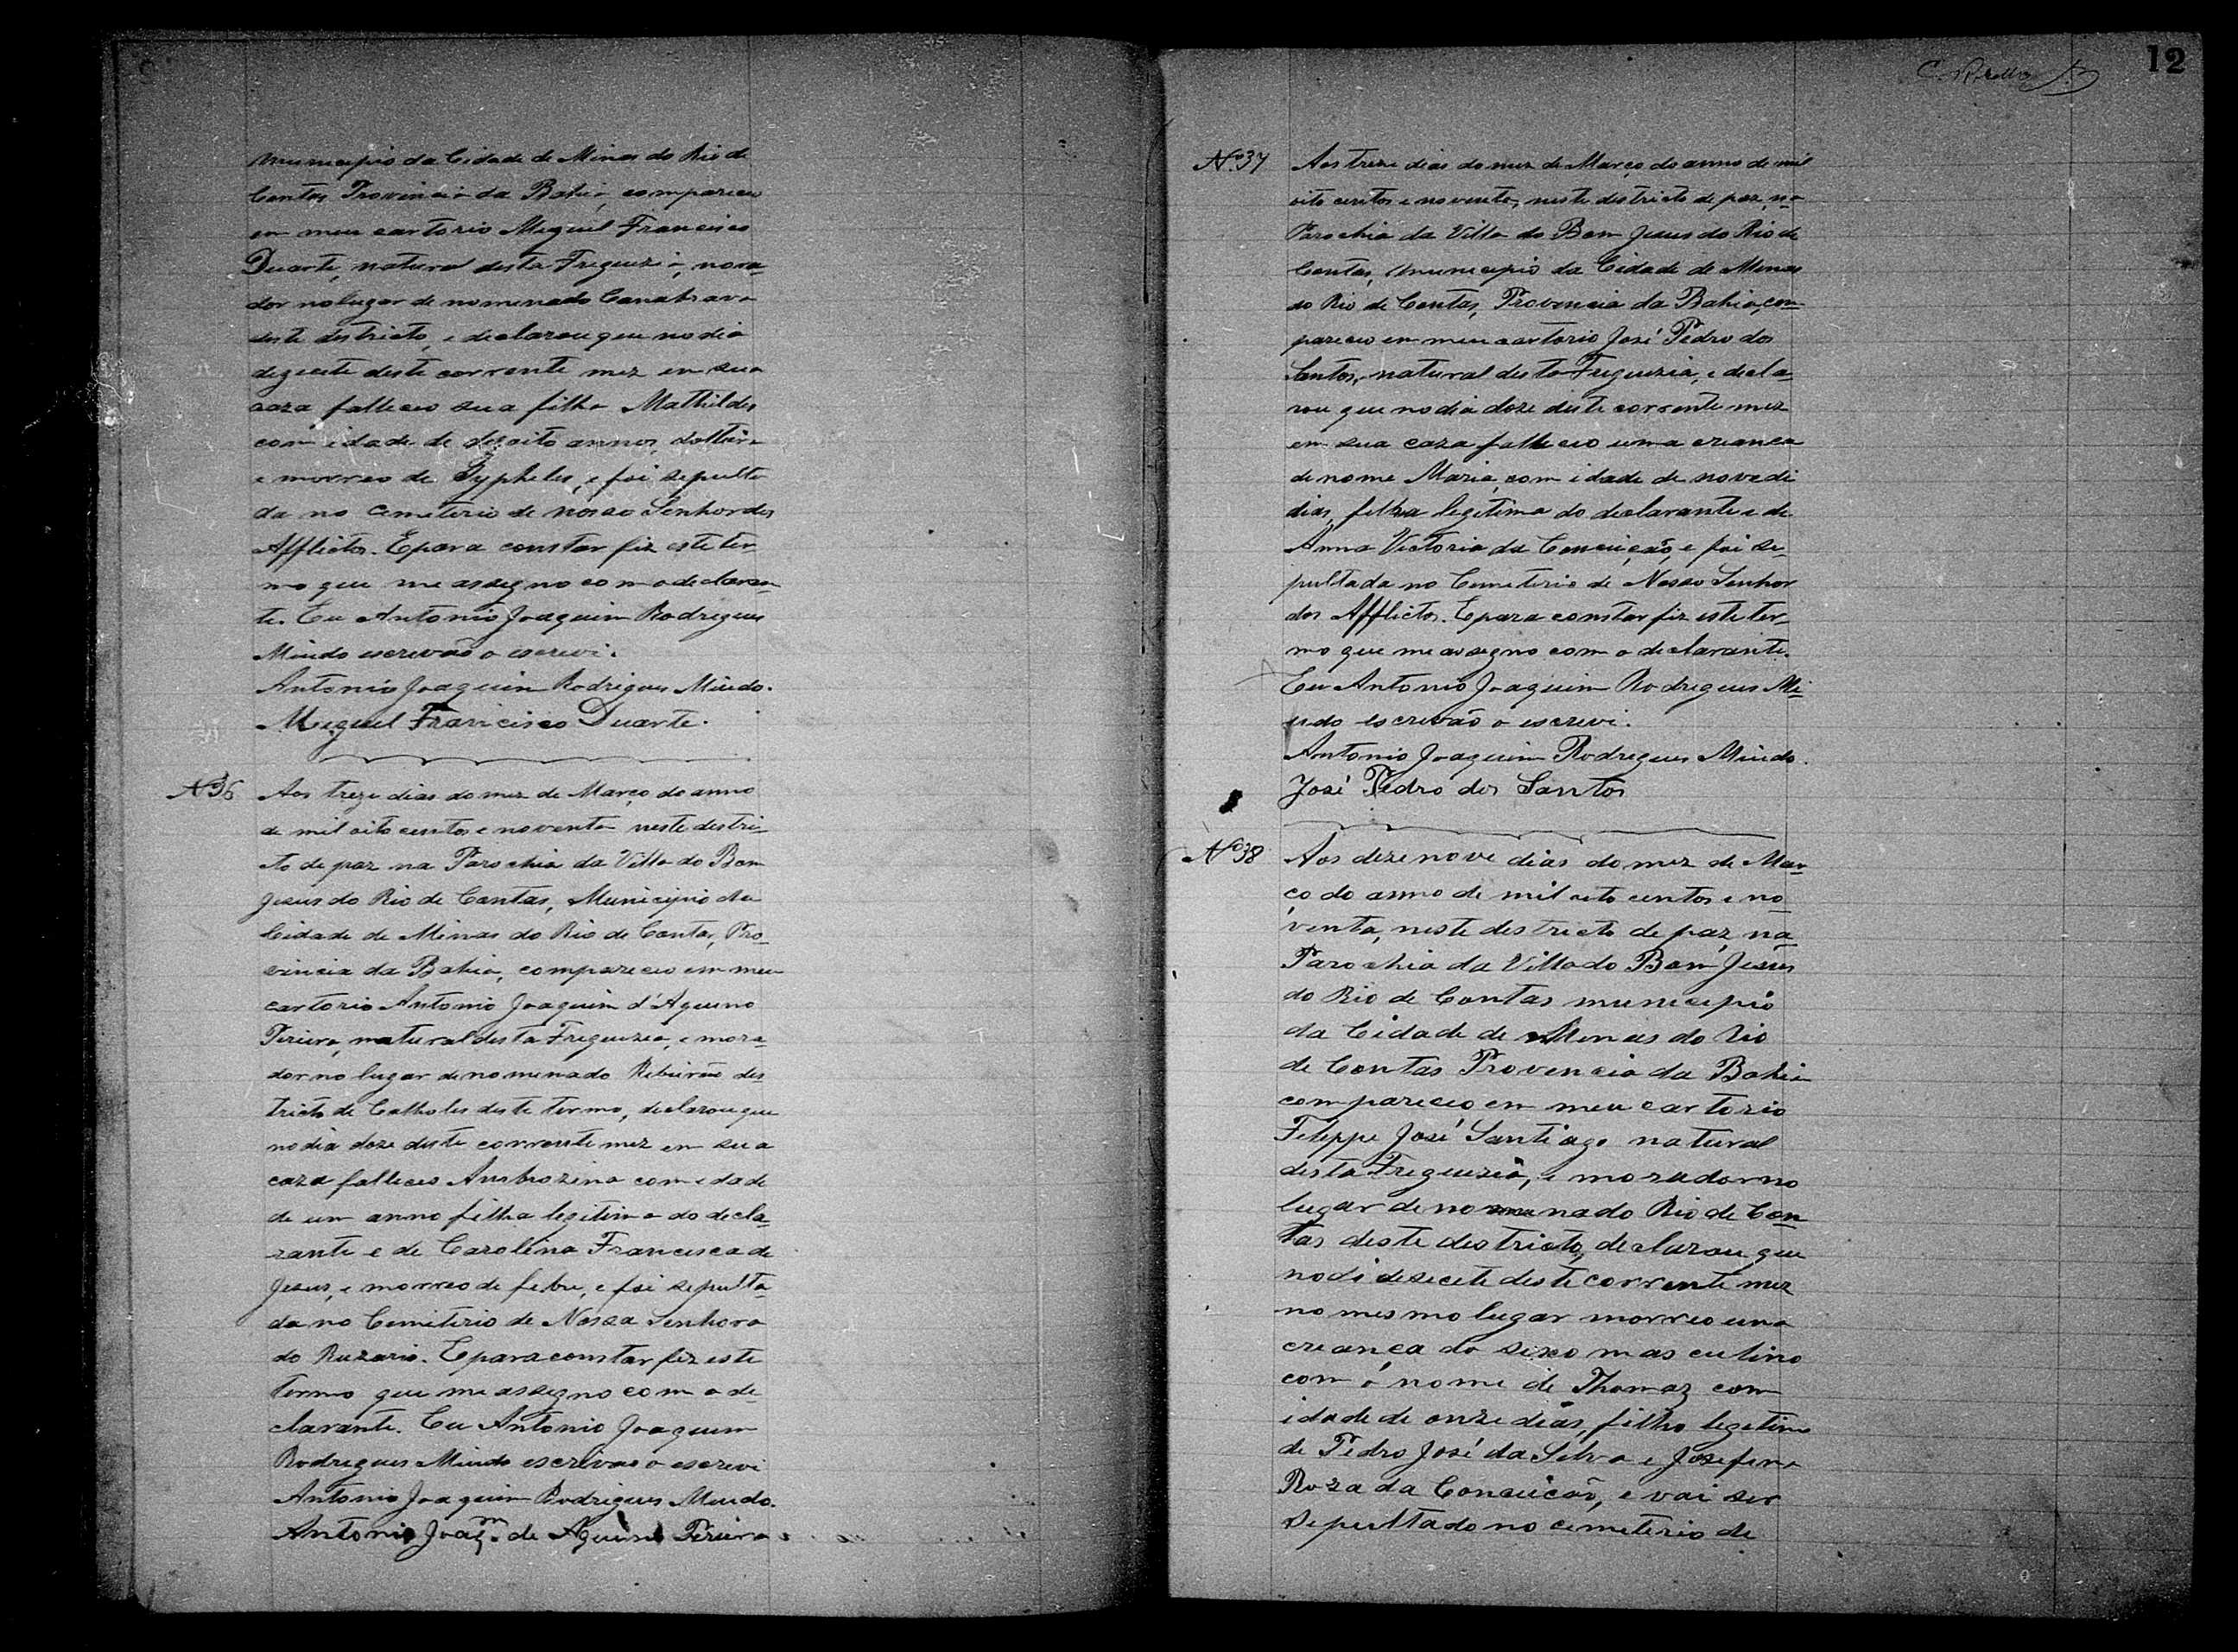 municipio da Cidade de Minas do Rio de
Contas Provincia da Bahia, compareceu
em meu cartorio Miguel Francisco
Duarte, natural desta Freguezia, mora-
dor no lugar de nomenado Canabrava
deste destricto, e declarou que no dia
dezecete deste corrente mez em sua
caza falleceo sua filha Mathildes
com idade de desoito annos, solteira
e morreo de Sypheles, e foi sepulta
da no Cemeterio de nosso Senhor dos
Afflictos. E para constar fiz este ter
mo que me assegno com o declaran-
te. Eu Antonio Joaquim Rodrigues
Miudo escrevão o escrevi.
Antonio Joaquim Rodrigues Miudo.
Miguel Francisco Duarte.
Nº 36 Aos treze dias do mez de Março do anno
de mil oito centos e noventa neste destri-
cto de paz na Parochia da Villa do Bom
Jesus do Rio de Contas, Municipio da
Cidade de Minas do Rio de Contas, Pro-
vincia da Bahia, compareceo em meu
cartorio Antonio Joaquim d'Aquino
Pereira, natural desta Freguezia, e mora-
dor no lugar denomenado Ribeirão des
tricto de Catholes deste termo, declarou que
no dia doze deste corrente mez em sua
caza falleceo Ambrozina com edade
de um anno filha legitima do decla-
rante e de Carolina Francisca de
Jesus, e morreo de febre, e foi sepulta-
da no Cemiterio de Nossa Senhora
do Ruzario. E para constar fiz este
termo que me assegno com o de
clarante. Eu Antonio Joaquim
Rodrigues Miudo escrivão o escrevi
Antonio Joaquim Rodrigues Miudo.
Antonio Joaqm. de Aquino Pereira
12
Nº 37 Aos treze dias do mez de Março do anno de mil
oito centos e noventa, neste destricto de paz, na
Parochia da Villa do Bom Jesus do Rio de
Contas, municipio da Cidade de Minas
do Rio de Contas, Provencia da Bahia, com-
pareceo em meu cartorio José Pedro dos
Santos, natural desta Freguezia, e decla-
rou que no dia doze deste corrente mez
em sua caza falleceo uma creanca
de nome Maria, com idade de nove di
dias, filha legitima do declarante e de
Anna Victoria da Conceição, e foi se-
pultada no Cemeterio de Nosso Senhor
dos Afflictos. E para constar fiz este ter-
mo que me assegno com o declarante.
Eu Antonio Joaquim Rodrigues Mi-
udo escrevão o escrevi.
Antonio Joaquim Rodrigues Miudo.
José Pedro dos Santos
Nº 38 Aos dezenove dias do mez de Mar-
ço do anno de mil oito centos e no
venta, neste destricto de paz, na
Parochia da Villa do Bom Jesus
do Rio de Contas municipio
da Cidade de Menas do Rio
de Contas Provencia da Bahia
compareceo em meu cartorio
Feleppe José Santiago natural
desta Freguezia, e morador no
lugar denomenado Rio de Con-
tas deste destricto, declarou que
no di dezecete deste corrente mez
no mesmo lugar morreo uma
creança do sexo masculino
com o nome de Thomaz com
idade de onze dias, filho legetimo
de Pedro José da Selva e Josefina
Roza da Conceicão, e vai ser
sepultado no cemeterio de